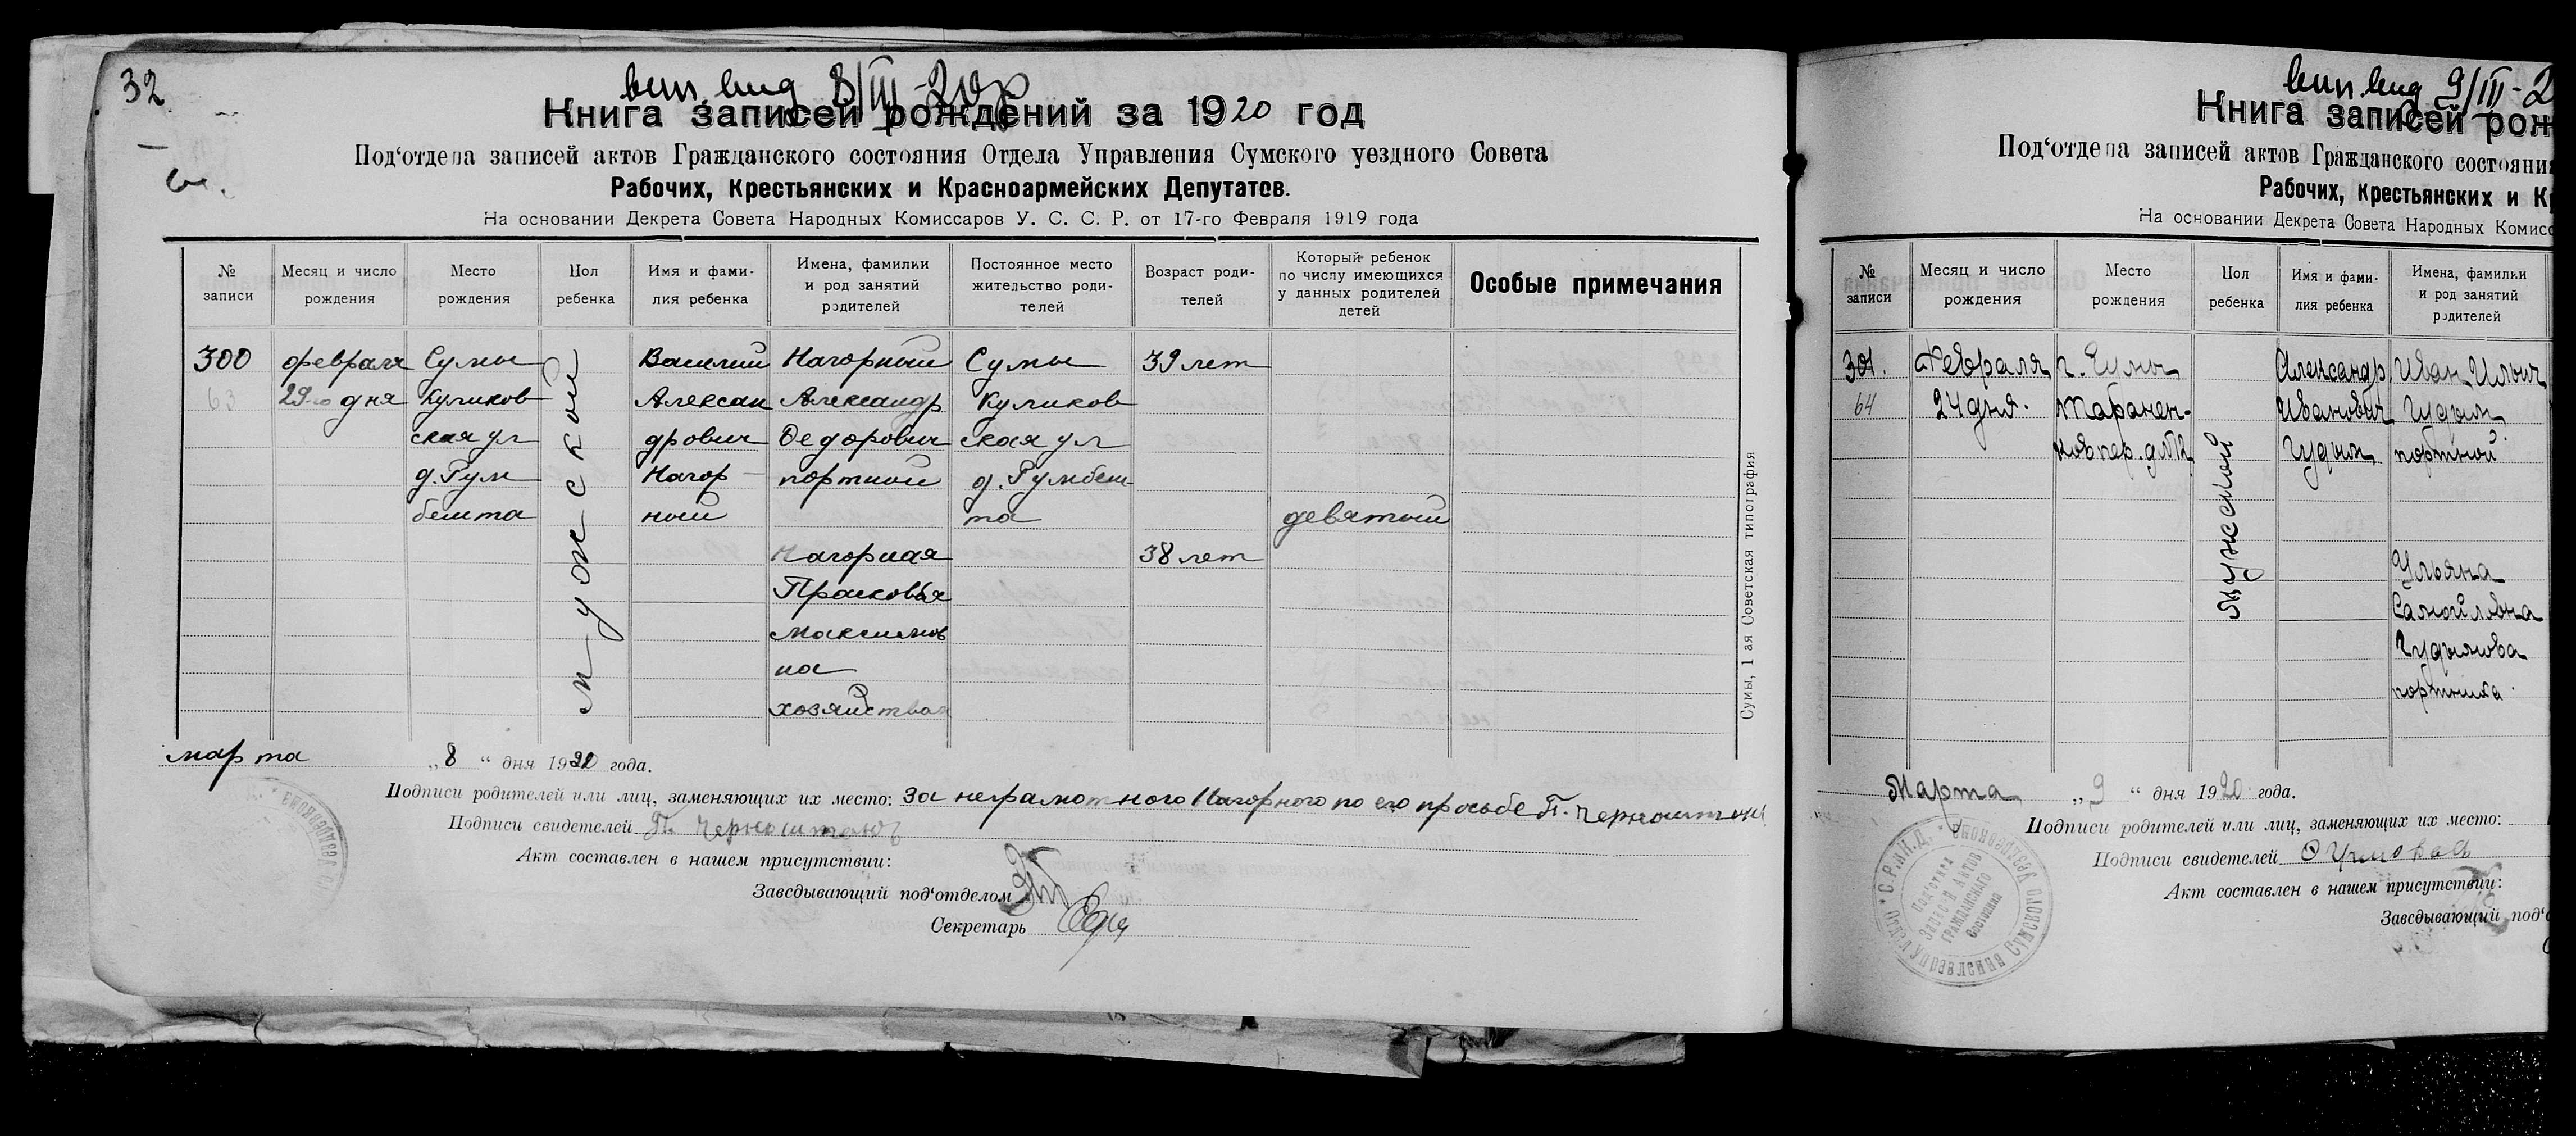 32
вып. вид 8/III-20 р
Книга записей рождений за 1920 год
Под‘отдела записей актов Гражданского состояния Отдела Управления Сумского уездного Совета
Рабочих, Крестьянских и Красноармейских Депутатов.
На основании Декрета Совета Народных Комиссаров У. С. С. Р. от 17-го Февраля 1919 года
№ записи
Месяц и число рождения
Место рождения
Пол ребенка
Имя и фамилия ребенка
Имена, фамилии и род занятий родителей
Постоянное место жительство родителей
Возраст родителей
Который ребенок по числу имеющихся у данных родителей детей
Особые примечания
300
63
февраля
29-го дня
Сумы
Куликов
ская ул
д. Гум
бешта
мужской
Василий
Алексан
дрович
Нагор
ный
Нагорный
Александр
Федорович
портной
Нагорная
Прасковья
Максимов
на
хозяйствая
Сумы
Куликов
ская ул
д. Гумбеш
та
39 лет
38 лет
девятый
Сумы, 1 ая Советская типография
марта „8“ дня 1920 года.
Подписи родителей или лиц, заменяющих их место: За неграмотного Нагорного по его просьбе П.
Подписи свидетелей П.
Акт составлен в нашем присутствии:
Заведывающий под‘отделом
Секретарь
вып вид 9/III-2
Книга записей рож
Под‘отдела записей актов Гражданского состояния
Рабочих, Крестьянских и К
На основании Декрета Совета Народных Комисс
№ записи
Месяц и число рождения
Место рождения
Пол ребенка
Имя и фамилия ребенка
Имена, фамилии и род занятий родителей
301.
64
Февраля
24 дня.
г. Сумы
пер. д №12
Мужской
Александр
Иванович
Гудым
Иван Ильич
Гудым
портной
Ульяна
Самойловна
Гудымова
портниха.
Марта „9“ дня 1920 года.
Подписи родителей или лиц, заменяющих их место:
Подписи свидетелей
Акт составлен в нашем присутствии:
Заведывающий под‘о
Отдел Управления Сумского Уездревкома * С.Р. и К.Д. *
Подотдел
Записи Актов
Гражданскаго
Состояния